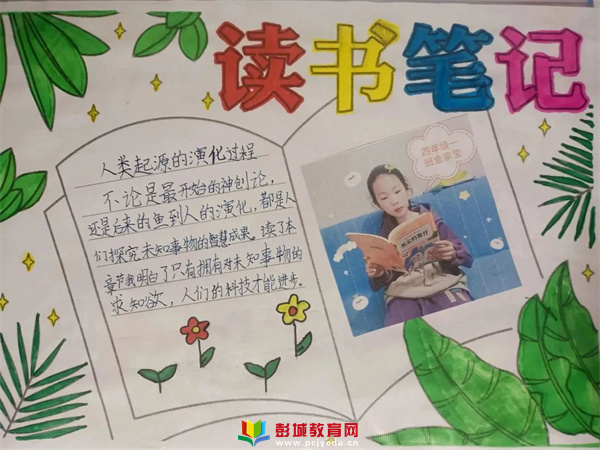 读书笔记
人类起源的演化过程
不论是最开始的神创论，
还是后来的鱼到人的演化，都是人
们探究未知事物的智慧成果。读了本
章节我明白了只有拥有对未知事物的
求知欲，人们的科技才能进步。
四年级一
班金家莹
彭城教育网
www.pcjyedu.cn